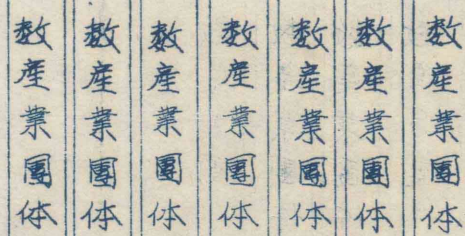 数産業團体
数産業團体
数産業團体
数産業團体
数産業團体
数産業團体
数産業團体